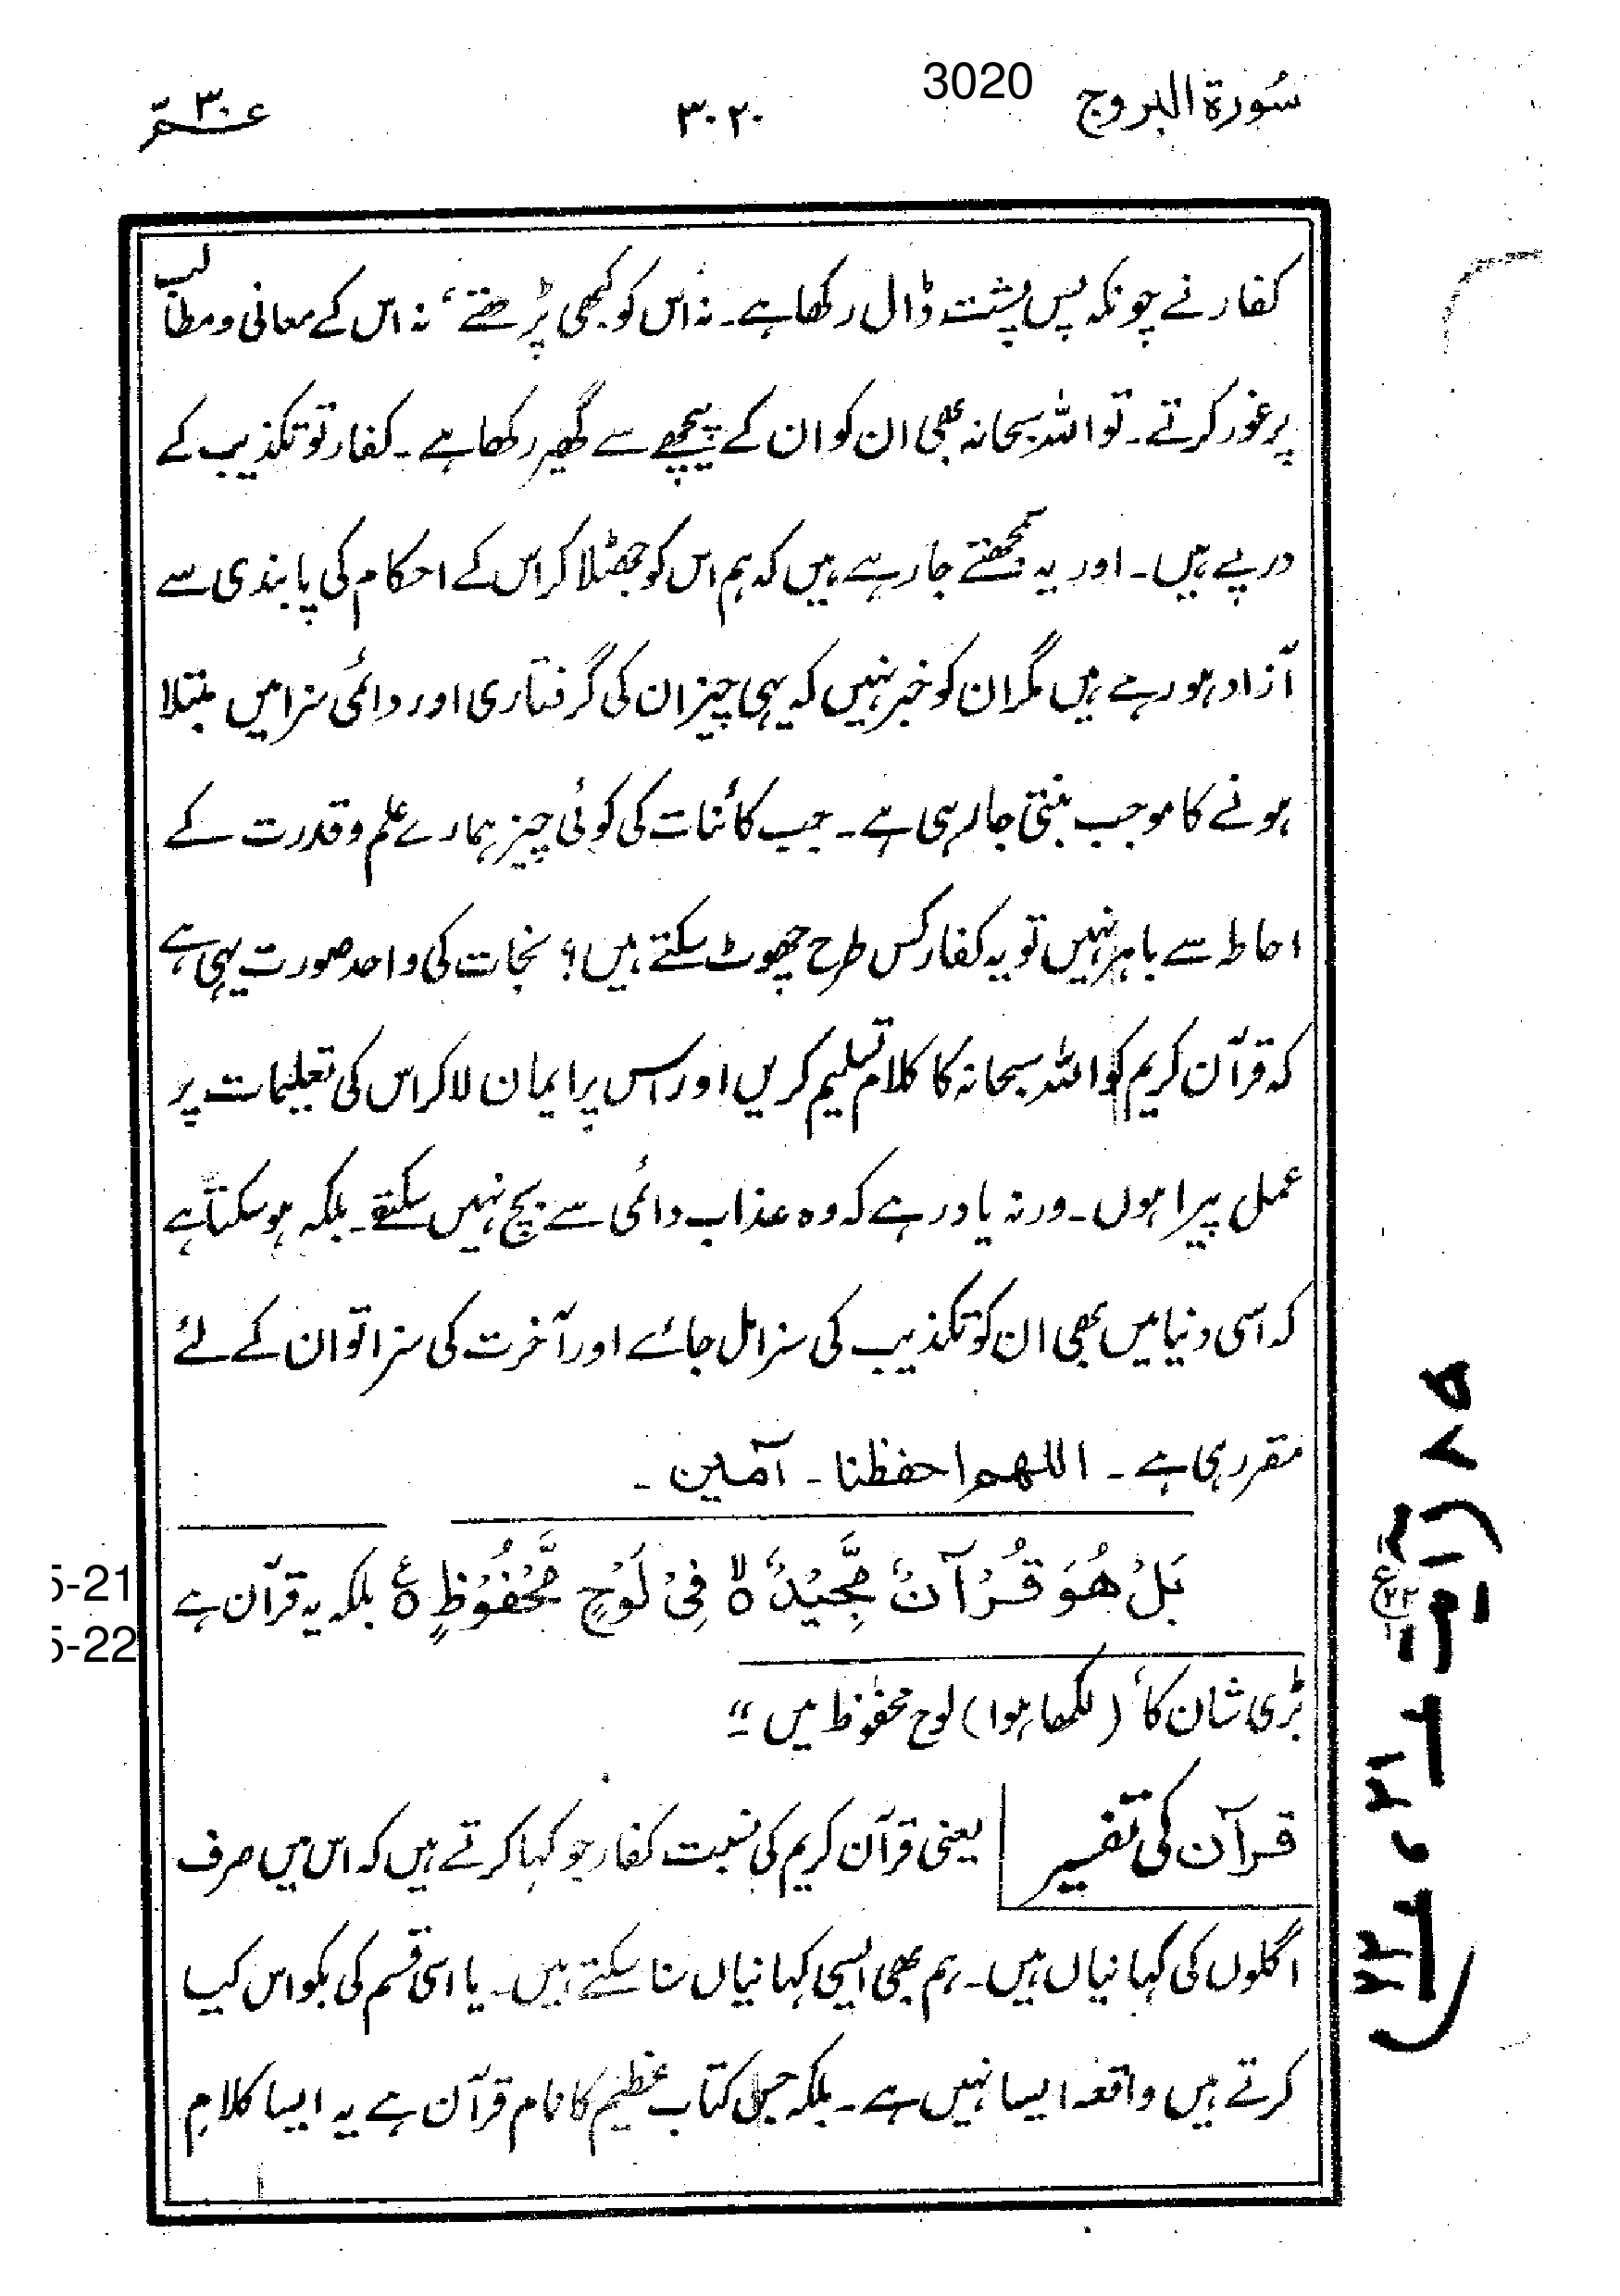 سُورة البروج
3020
۳۰۲۰
عمّ ۳۰
کفار نے چونکہ پس پشت ڈال رکھا ہے۔ نہ اس کو کبھی پڑھتے، نہ اس کے معانی و مطالب
پر غور کرتے۔ تو اللہ سبحانہ بھی ان کو ان کے پیچھے سے گھیر رکھا ہے۔ کفار تو تکذیب کے
درپے ہیں۔ اور یہ سمجھتے جا رہے ہیں کہ ہم اس کو جھٹلا کر اس کے احکام کی پابندی سے
آزاد ہو رہے ہیں مگر ان کو خبر نہیں کہ یہی چیز ان کی گرفتاری اور دائمی سزا میں مبتلا
ہونے کا موجب بنتی جا رہی ہے۔ جب کائنات کی کوئی چیز ہمارے علم و قدرت کے
احاطہ سے باہر نہیں تو یہ کفار کس طرح چھوٹ سکتے ہیں؟ نجات کی واحد صورت یہی ہے
کہ قرآن کریم کو اللہ سبحانہ کا کلام تسلیم کریں اور اس پر ایمان لا کر اس کی تعلیمات پر
عمل پیرا ہوں۔ ورنہ یاد رہے کہ وہ عذاب دائمی سے بچ نہیں سکتے۔ بلکہ ہو سکتا ہے
کہ اسی دنیا میں بھی ان کو تکذیب کی سزا مل جائے اور آخرت کی سزا تو ان کے لئے
مقرر ہی ہے۔ اللهم احفظنا۔ آمین۔
بَلْ هُوَ قُرْآنٌ مَّجِيْدٌ ۙ فِیْ لَوْحٍ مَّحْفُوْظٍ ۧ بلکہ یہ قرآن ہے
5-21
5-22
بڑی شان کا، (لکھا ہوا) لوح محفوظ میں"
قرآن کی تفسیر
یعنی قرآن کریم کی نسبت کفار جو کہا کرتے ہیں کہ اس میں صرف
اگلوں کی کہانیاں ہیں۔ ہم بھی ایسی کہانیاں سنا سکتے ہیں۔ یا اسی قسم کی بکواس کیا
کرتے ہیں واقعہ ایسا نہیں ہے۔ بلکہ جس کتاب عظیم کا نام قرآن ہے یہ ایسا کلامِ